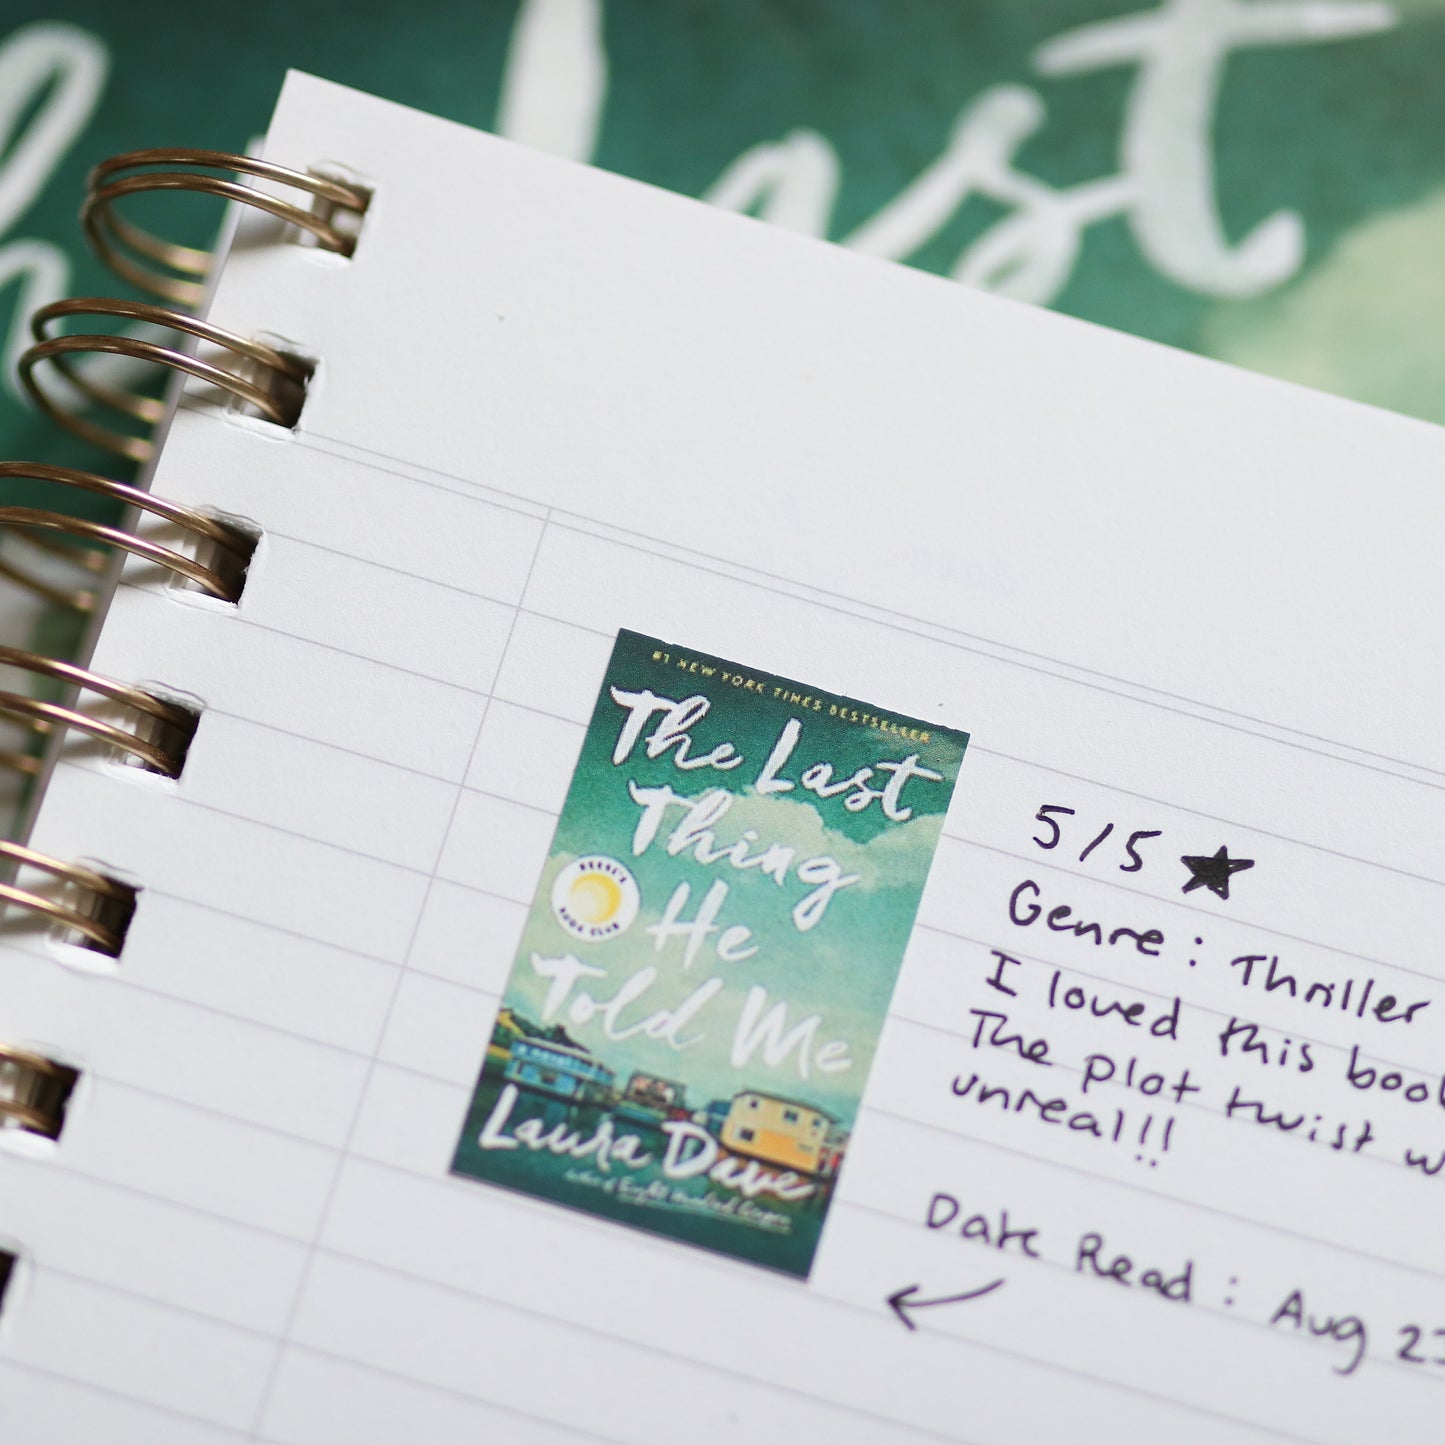 Last
#1 NEW YORK TIMES BESTSELLER
The Last
Thing
He
Told Me
REESE'S
BOOK CLUB
Laura Dave
Author of Eight Hundred Grapes
5/5 ★
Genre: Thriller
I loved this
The plot twist
unreal!!
Date Read: Aug